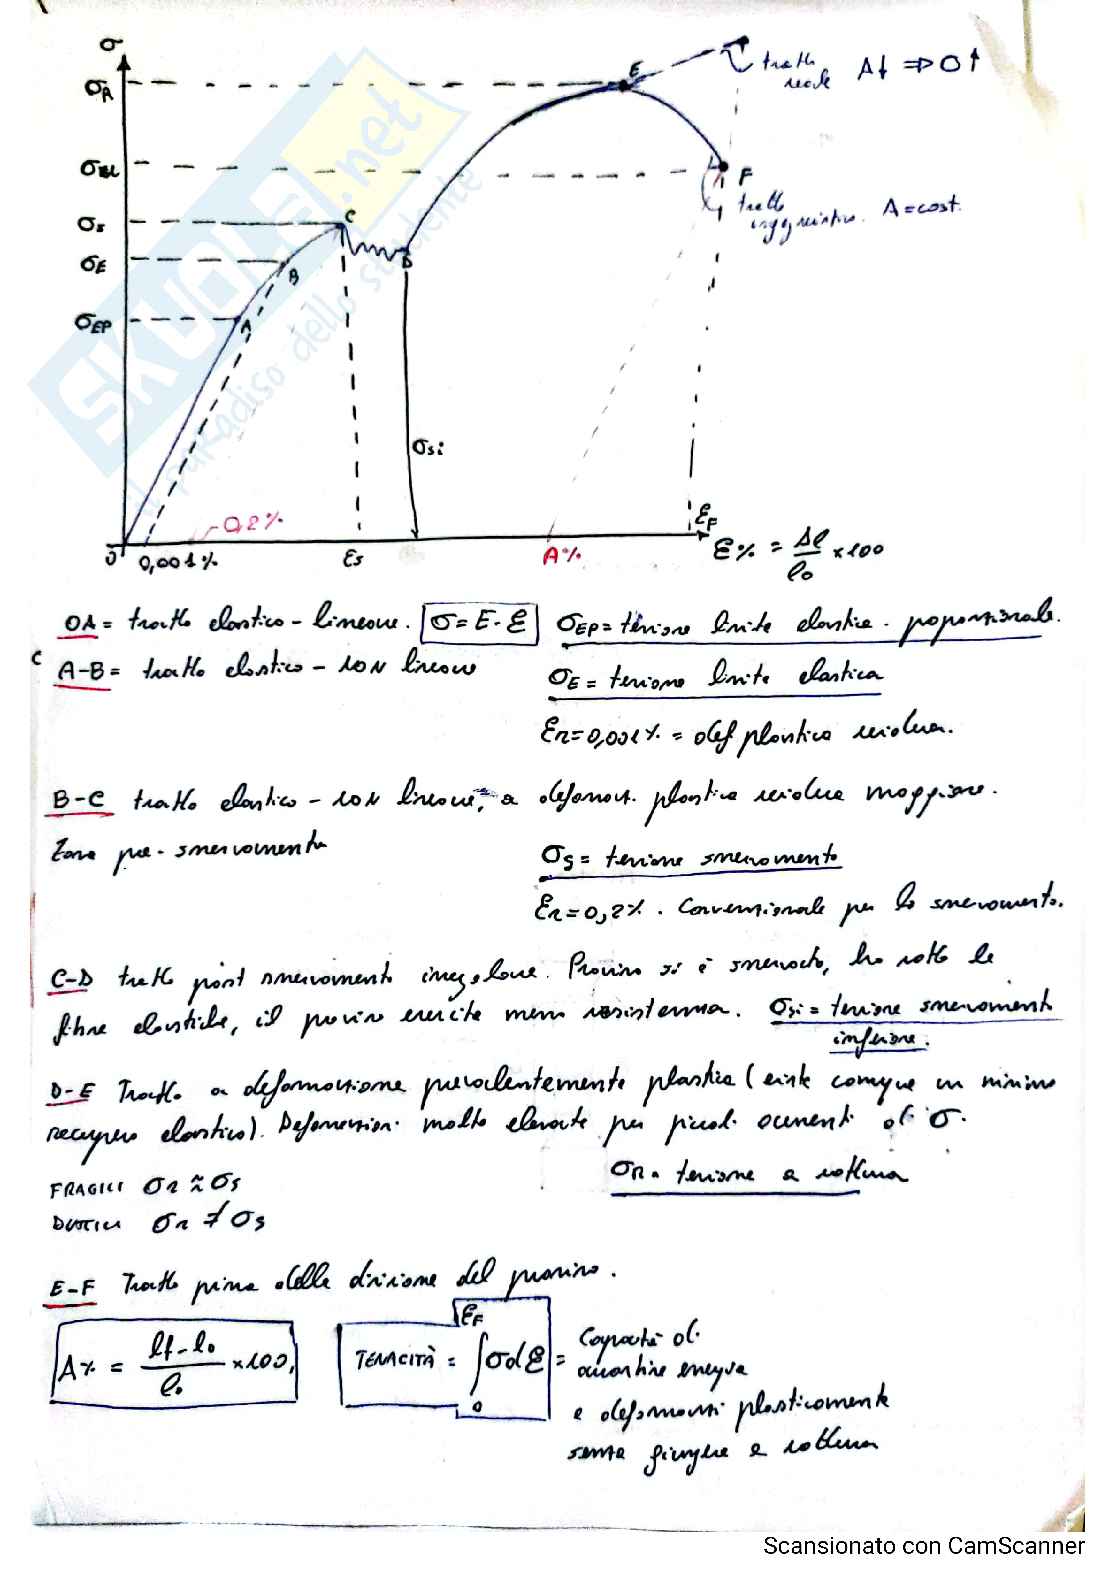 σ
σR
σUL
σs
σE
σEP
A
B
C
D
E
F
tratto reale
A↓ ⇒ σ↑
tratto ingegneristico. A=cost.
σsi
0
0,001%
0,2%
εs
A%
εF
ε% = Δl/l₀ ×100
SKUOLA.net
il paradiso dello studente
OA = tratto elastico - lineare. σ = E·ε σEP = tensione limite elastica - proporzionale.
A-B = tratto elastico - NON lineare
σE = tensione limite elastica
εr=0,001% = def plastica residua.
B-C tratto elastico - NON lineare, a deformaz. plastica residua maggiore.
Zona pre-snervamento
σs = tensione snervamento
εr=0,2%. Convenzionale per lo snervamento.
C-D tratto post snervamento irregolare. Provino si è snervato, ha rotto le
fibre elastiche, il provino esercita meno resistenza. σsi = tensione snervamento
inferiore.
D-E Tratto a deformazione prevalentemente plastica (esiste comunque un minimo
recupero elastico). Deformazioni molto elevate per piccoli aumenti di σ.
FRAGILI σr ≈ σs
σR = tensione a rottura
DUTTILI σr ≠ σs
E-F Tratto prima della divisione del provino.
A% = (lf - l₀)/l₀ ×100,
TENACITÀ = ∫₀^εF σdε = Capacità di
assorbire energia
e deformarsi plasticamente
senza giungere a rottura
Scansionato con CamScanner